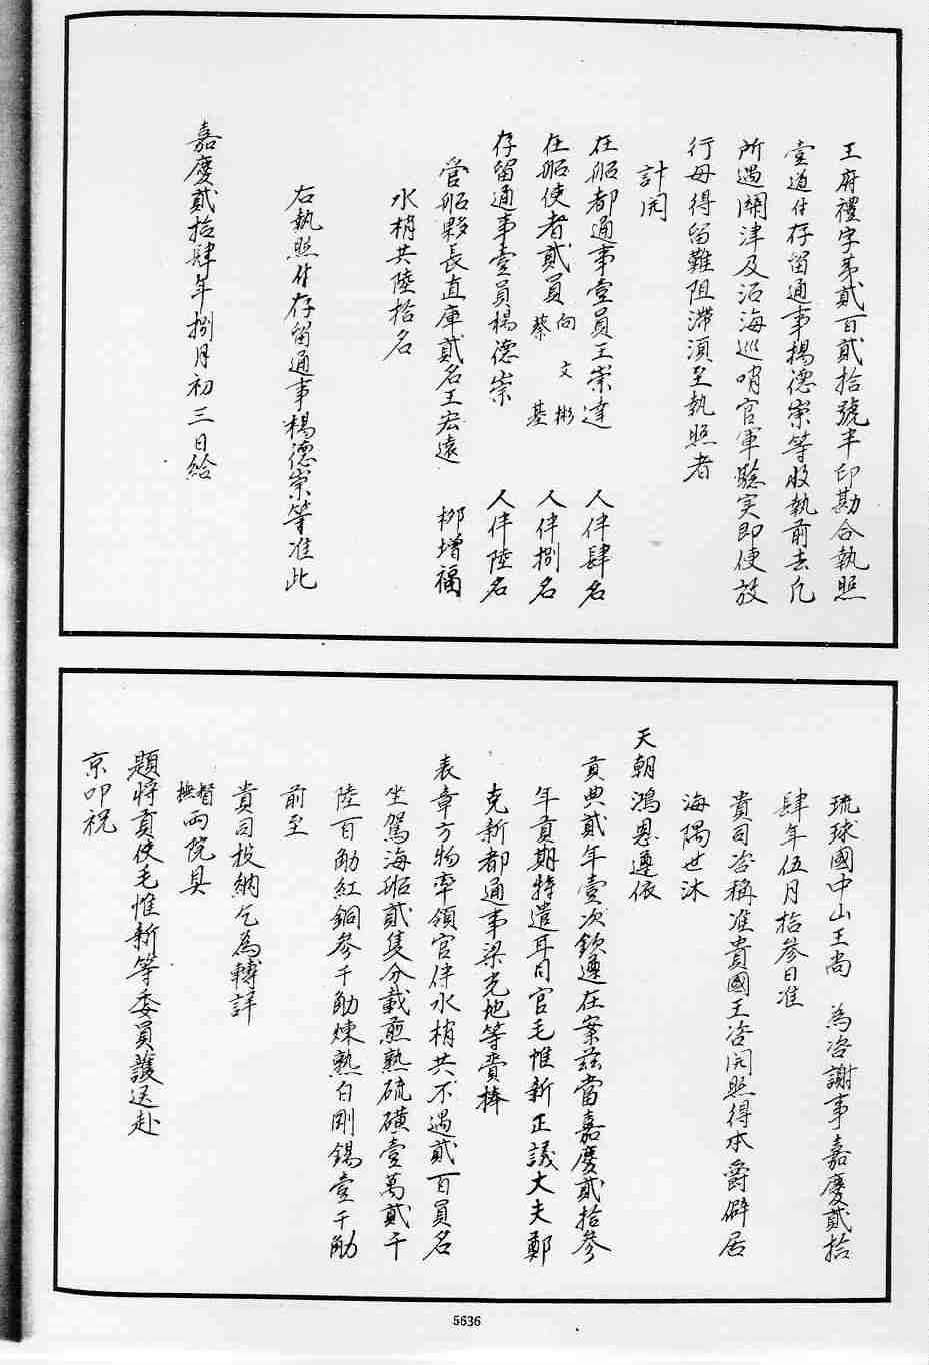 王府禮字第貳百貳拾號半印勘合執照
壹道付存留通事楊德崇等收執前去凡
所遇關津及沿海巡哨官軍驗実即便放
行毋得留難阻滯湏至執照者
計開
在船都通事壹員王崇達 人伴肆名
在船使者貳員 向文彬 蔡基 人伴捌名
存留通事壹員楊德崇 人伴陸名
管船夥長直庫貳名王宏遠 栁增福
水梢共陸拾名
右執照付存留通事楊德崇等准此
嘉慶貳拾肆年捌月初三日給
琉球國中山王尚 為咨謝事嘉慶貳拾
肆年伍月拾參日准
貴司咨稱准貴國王咨開照得本爵僻居
海隅世沐
天朝鴻恩遵依
貢典貳年壹次欽遵在案茲當嘉慶貳拾參
年貢期特遣耳目官毛惟新正議大夫鄭
克新都通事梁光地等賫捧
表章方物率領官伴水梢共不過貳百員名
坐駕海船貳隻分載煎熟硫磺壹萬貳千
陸百觔紅銅參千觔煉熟白剛錫壹千觔
前至
貴司投納乞為轉詳
督撫両院具
題將貢使毛惟新等委員護送赴
京叩祝
5636